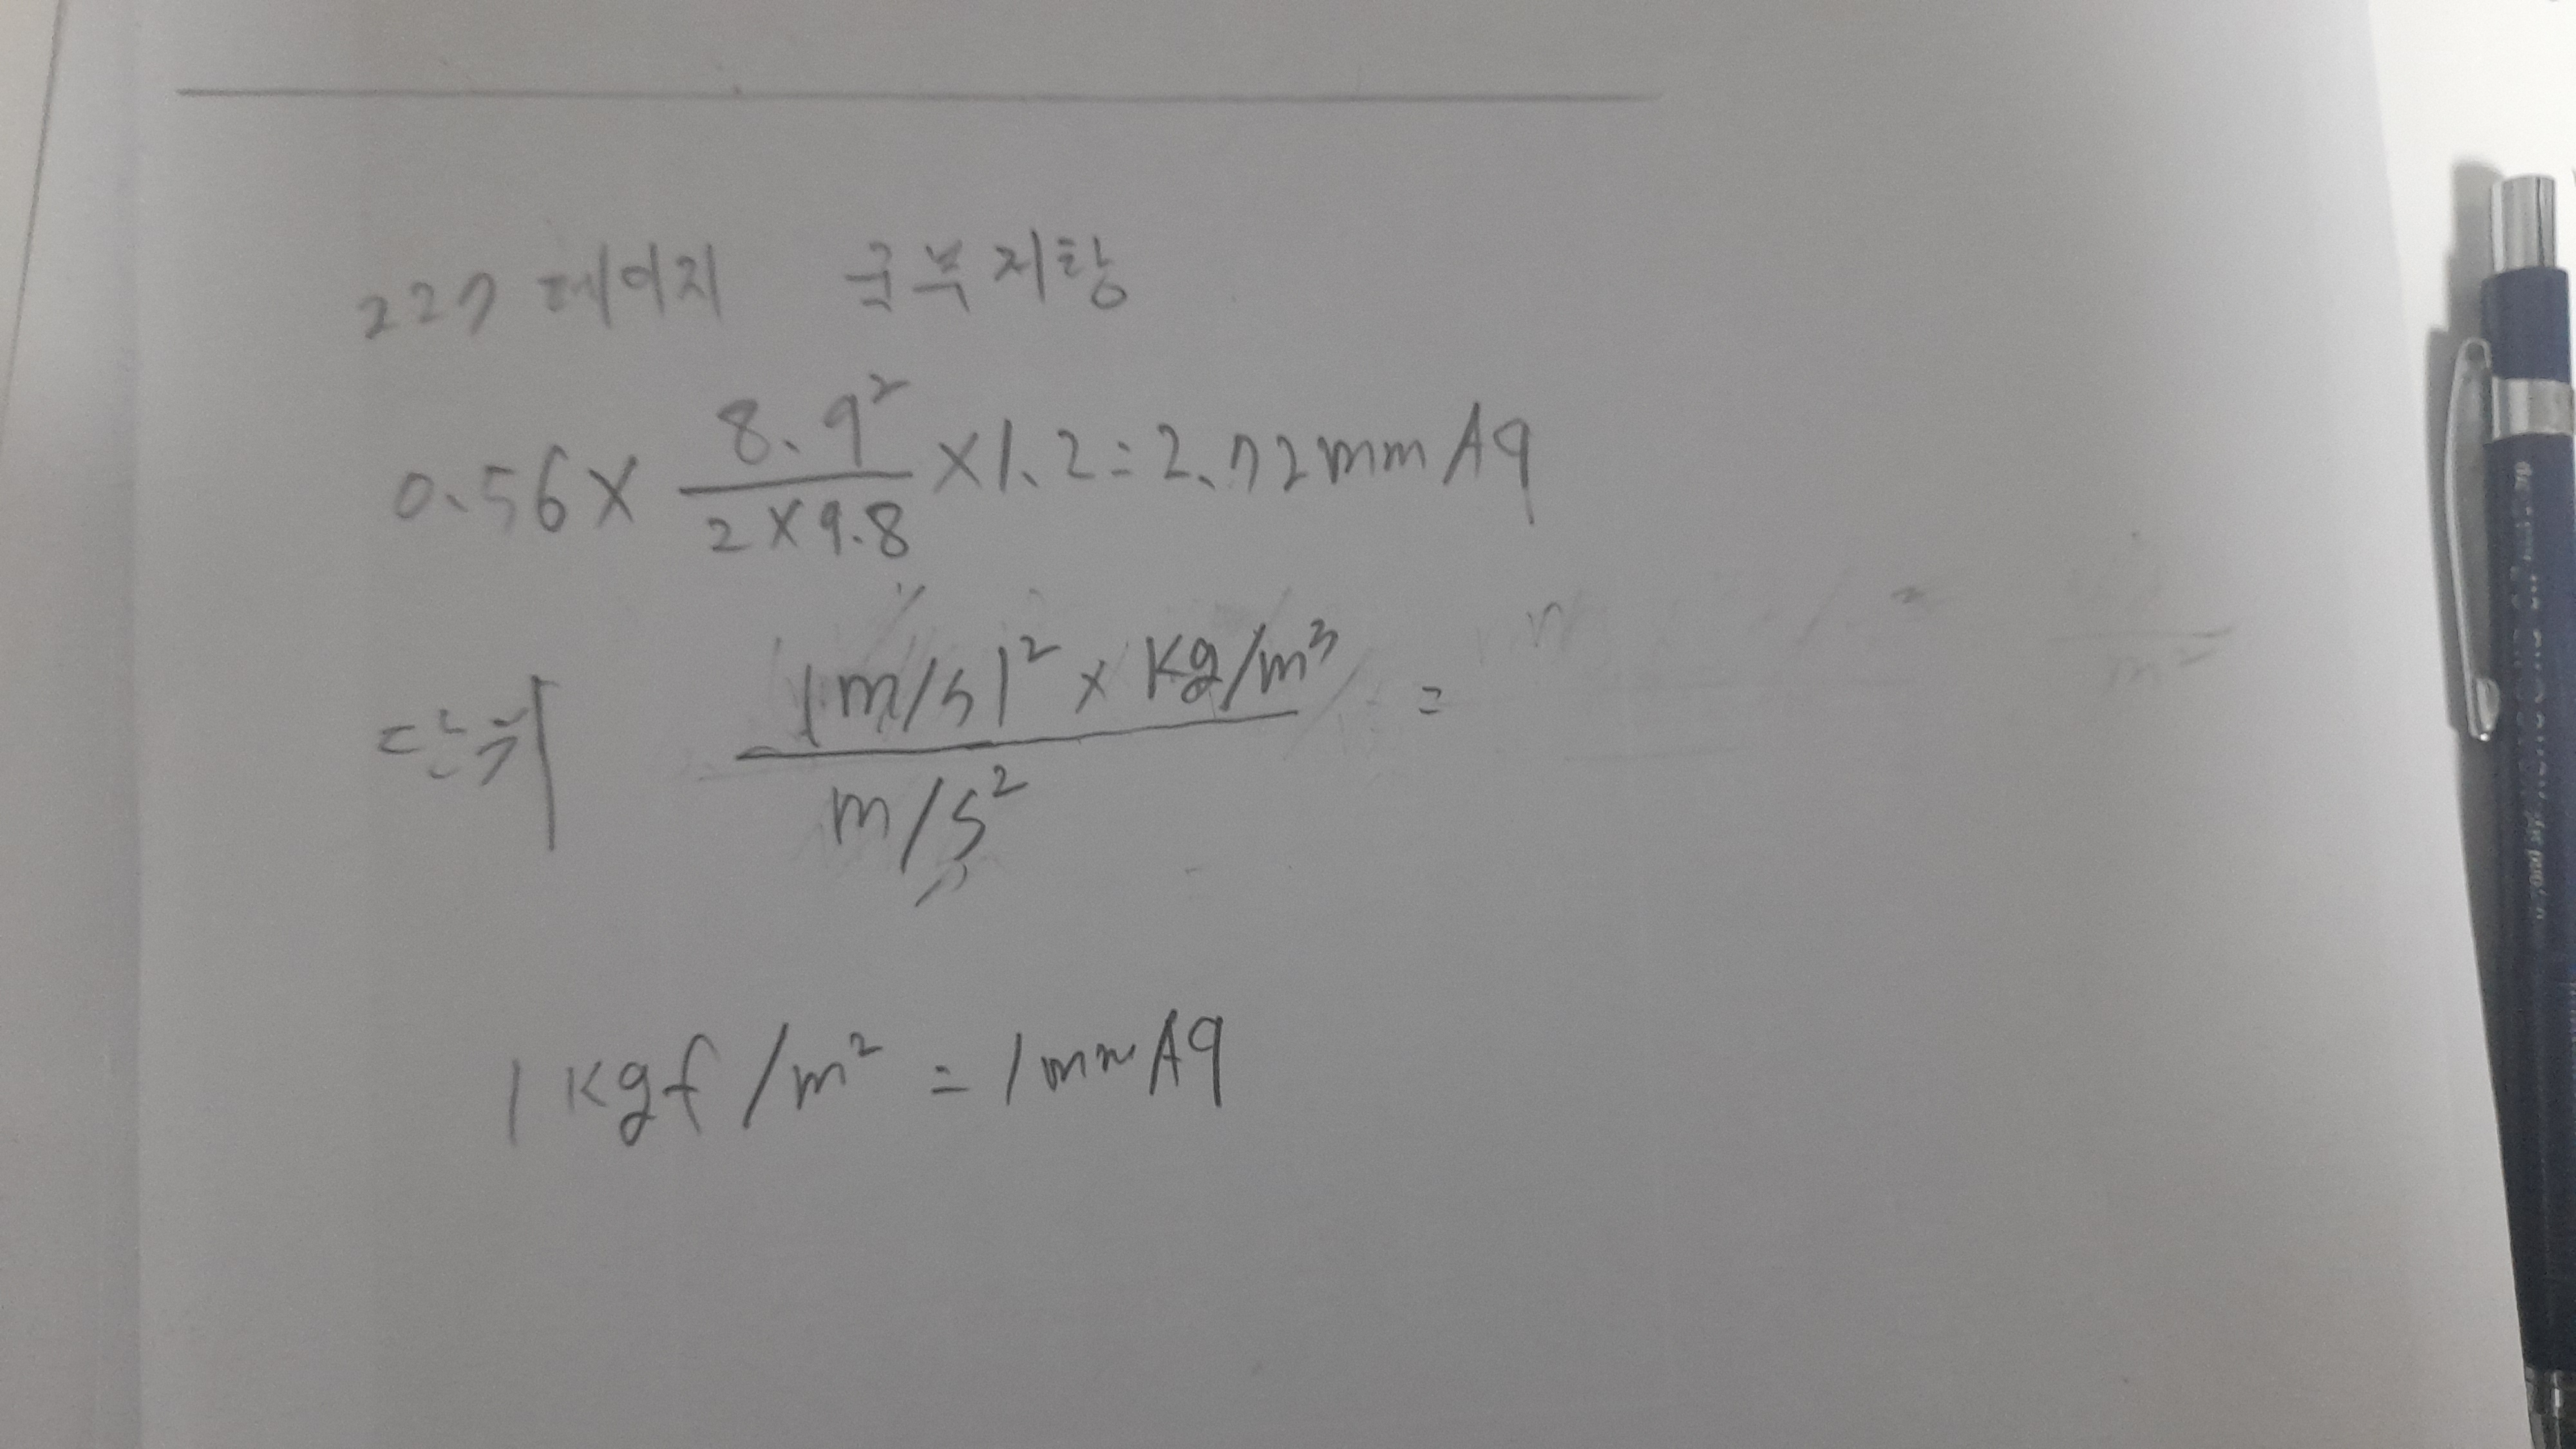 227 페이지 국부저항
0.56 × 8.9² / 2 × 9.8 × 1.2 = 2.72 mmAq
단위 (m/s)² × kg/m³ / m/s² =
1 kgf/m² = 1 mmAq